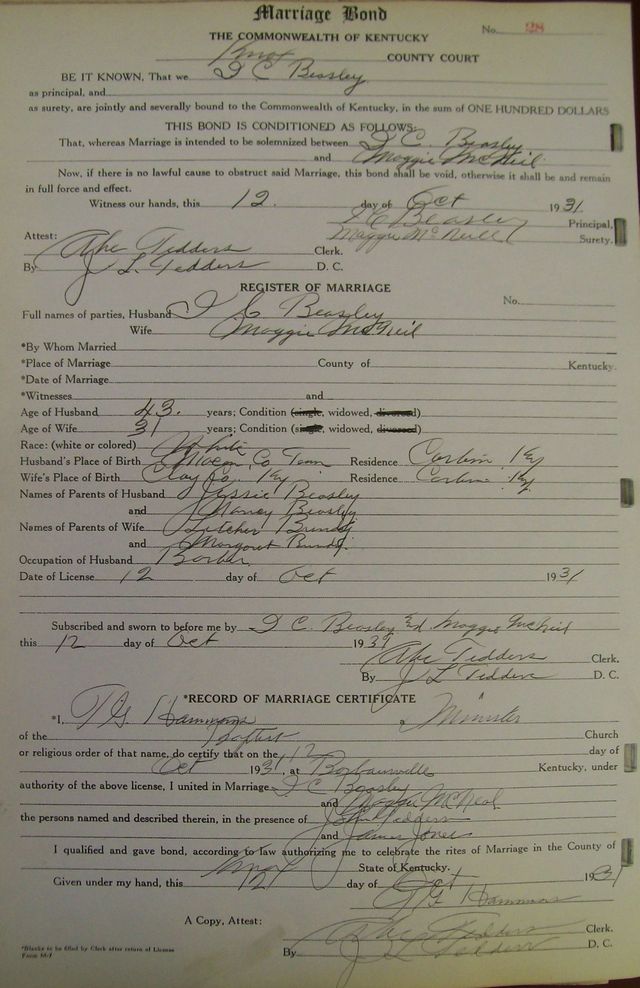 Marriage Bond
No. 28
THE COMMONWEALTH OF KENTUCKY
Knox COUNTY COURT
BE IT KNOWN, That we I C Beasley
as principal, and
as surety, are jointly and severally bound to the Commonwealth of Kentucky, in the sum of ONE HUNDRED DOLLARS
THIS BOND IS CONDITIONED AS FOLLOWS:
That, whereas Marriage is intended to be solemnized between I C. Beasley
and Maggie McNeil
Now, if there is no lawful cause to obstruct said Marriage, this bond shall be void, otherwise it shall be and remain
in full force and effect.
Witness our hands, this 12. day of Oct 1931
I C Beasley Principal,
Maggie McNeill Surety.
Attest:
Abe Tedders Clerk.
By J L Tedders D. C.
REGISTER OF MARRIAGE
No.
Full names of parties, Husband I C Beasley
Wife Maggie McNeil
*By Whom Married
*Place of Marriage County of Kentucky.
*Date of Marriage
*Witnesses and
Age of Husband 43. years; Condition (single, widowed, divorced)
Age of Wife 31 years; Condition (single, widowed, divorced)
Race: (white or colored) White
Husband's Place of Birth Co Tenn Residence Corbin Ky
Wife's Place of Birth Clay Co. Ky Residence Corbin Ky.
Names of Parents of Husband Jessie Beasley
and Nancy Beasley
Names of Parents of Wife Letcher Bundy
and Margaret Bundy.
Occupation of Husband Barber
Date of License 12 day of Oct 1931
Subscribed and sworn to before me by I C. Beasley and Maggie McNeil
this 12 day of Oct 1931
Abe Tedders Clerk.
By J L Tedders D. C.
*RECORD OF MARRIAGE CERTIFICATE
*I, T G Hammons a Minister
of the Baptist Church
or religious order of that name, do certify that on the 12 day of
Oct 1931, at Barbourville Kentucky, under
authority of the above license, I united in Marriage I C Beasley
and Maggie McNeal
the persons named and described therein, in the presence of John Tedders
and James Jones
I qualified and gave bond, according to law authorizing me to celebrate the rites of Marriage in the County of
Knox State of Kentucky.
Given under my hand, this 12 day of Oct 1931
T G Hammons
A Copy, Attest:
Abe Tedders Clerk.
By J L Tedders D. C.
*Blanks to be filled by Clerk after return of License
Form M-1